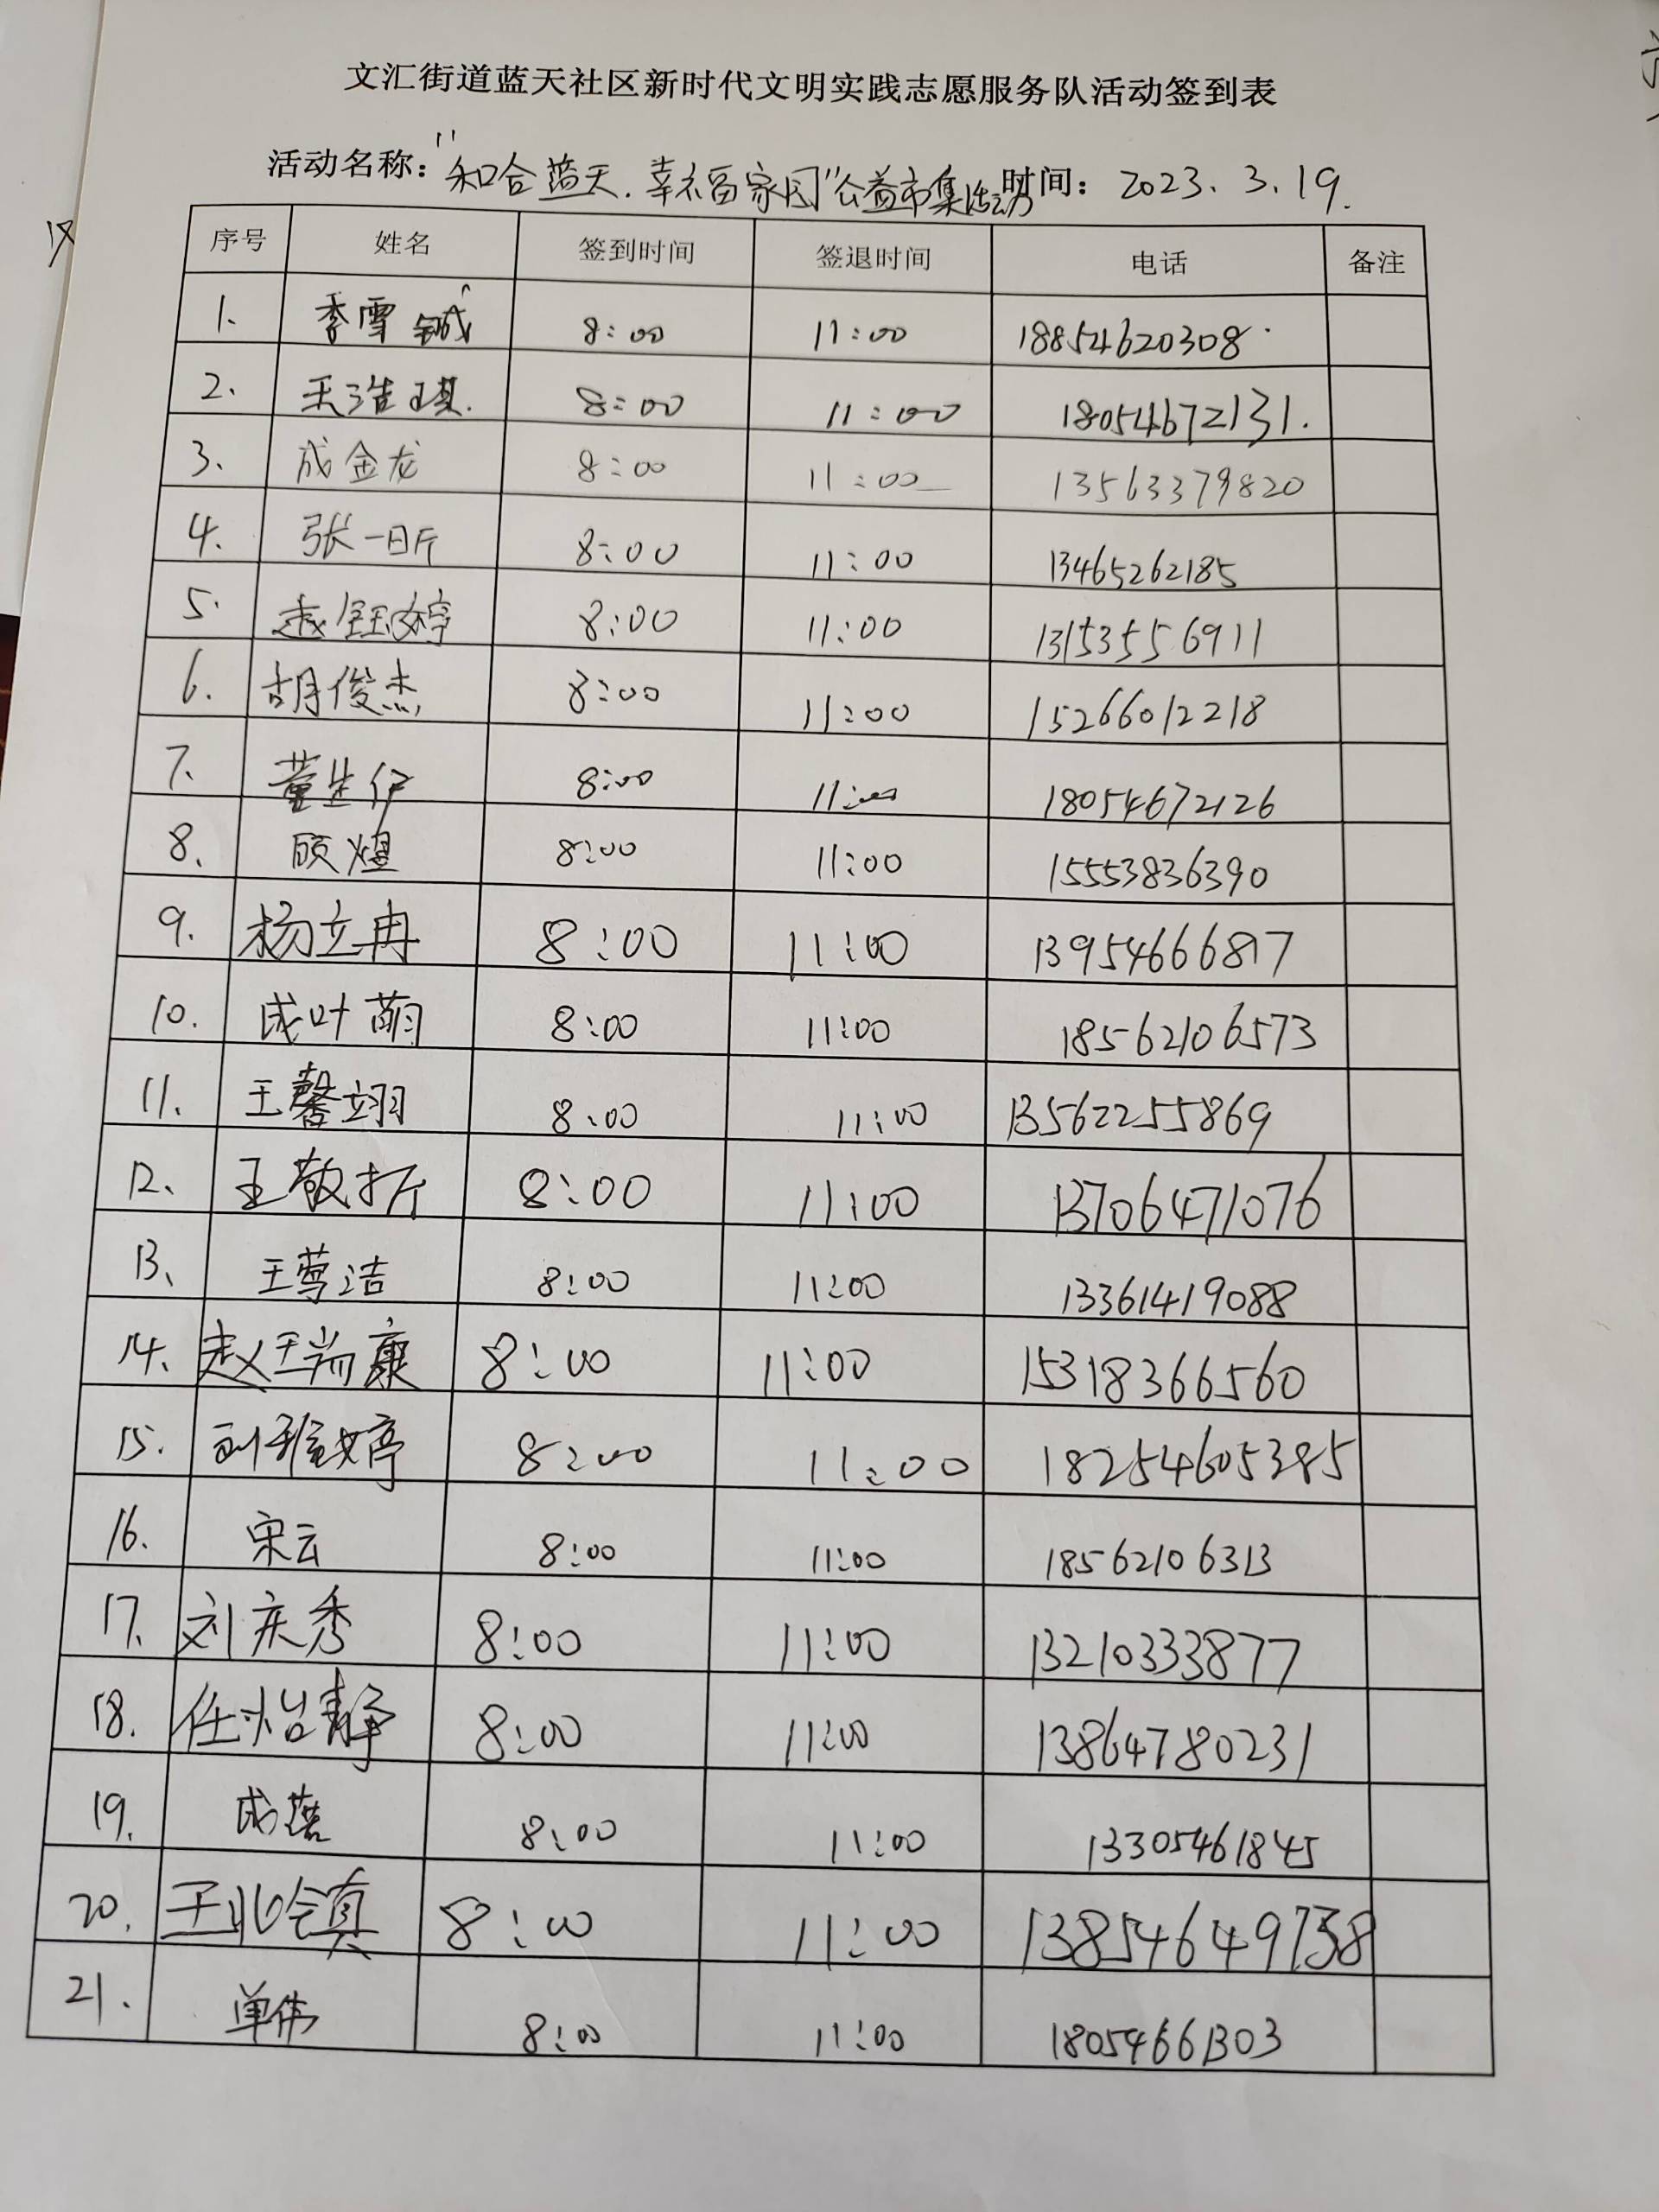 文汇街道蓝天社区新时代文明实践志愿服务队活动签到表
活动名称："和合蓝天.幸福家园"公益市集活动 时间：2023.3.19.
序号 姓名 签到时间 签退时间 电话 备注
1、 季雪 8:00 11:00 18854620308
2、 王浩琪 8:00 11:00 18054672131.
3、 成金龙 8:00 11:00 13563379820
4、 张一昕 8:00 11:00 13465262185
5. 赵钰婷 8:00 11:00 13153556911
6. 胡俊杰 8:00 11:00 15266012218
7、 董生伊 8:00 11:00 18054672126
8、 顾煜 8:00 11:00 15553836390
9. 杨立冉 8:00 11:00 13954666817
10. 成叶萌 8:00 11:00 18562106573
11. 王馨翊 8:00 11:00 13562255869
12、 王敬折 8:00 11:00 13706471076
13、 王莺洁 8:00 11:00 13361419088
14、 赵瑞康 8:00 11:00 15318366560
15. 刘雅婷 8:00 11:00 18254605385
16. 宋云 8:00 11:00 18562106313
17. 刘庆秀 8:00 11:00 13210333877
18. 任怡静 8:00 11:00 13864780231
19. 成蕾 8:00 11:00 13305461845
20. 王 8:00 11:00 13854649738
21. 单伟 8:00 11:00 18054661303